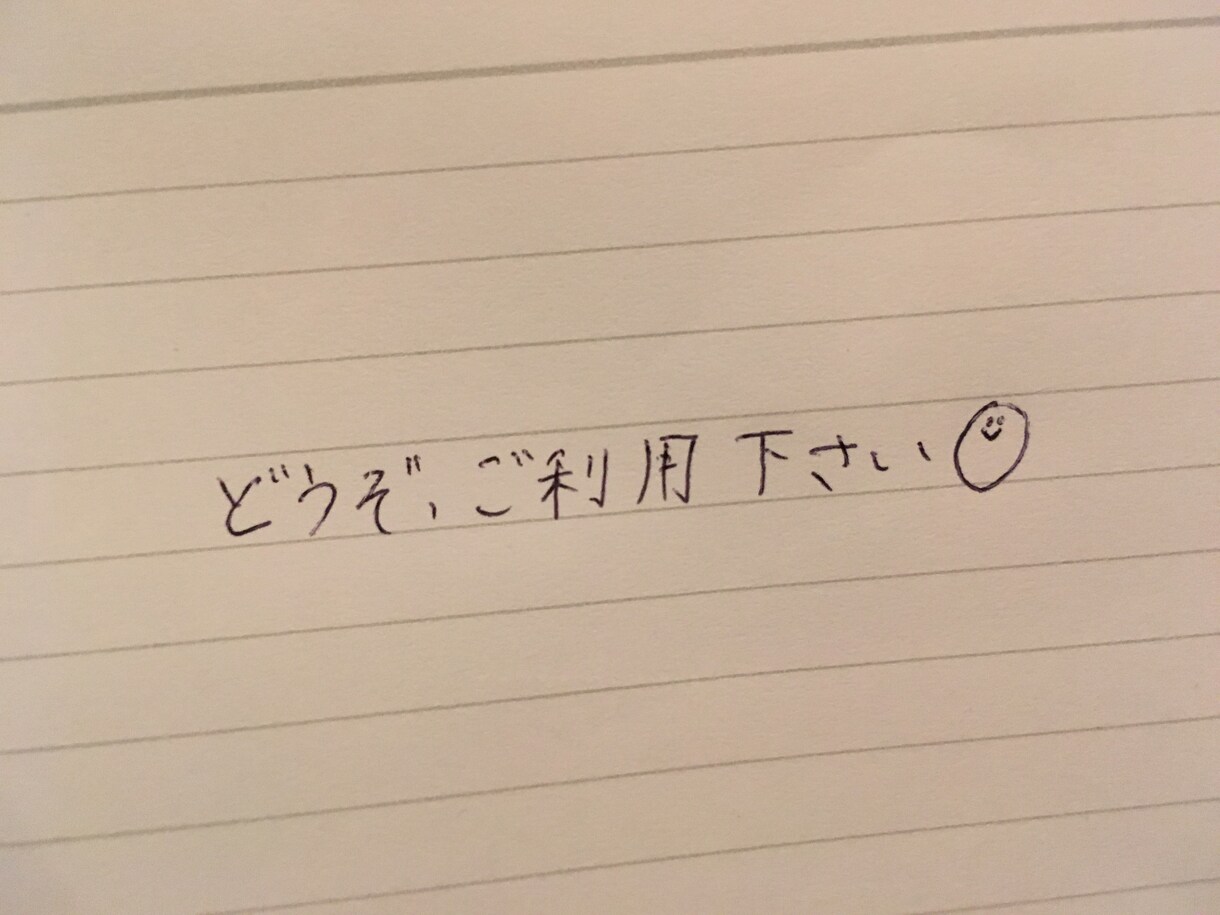 どうぞ、ご利用下さい